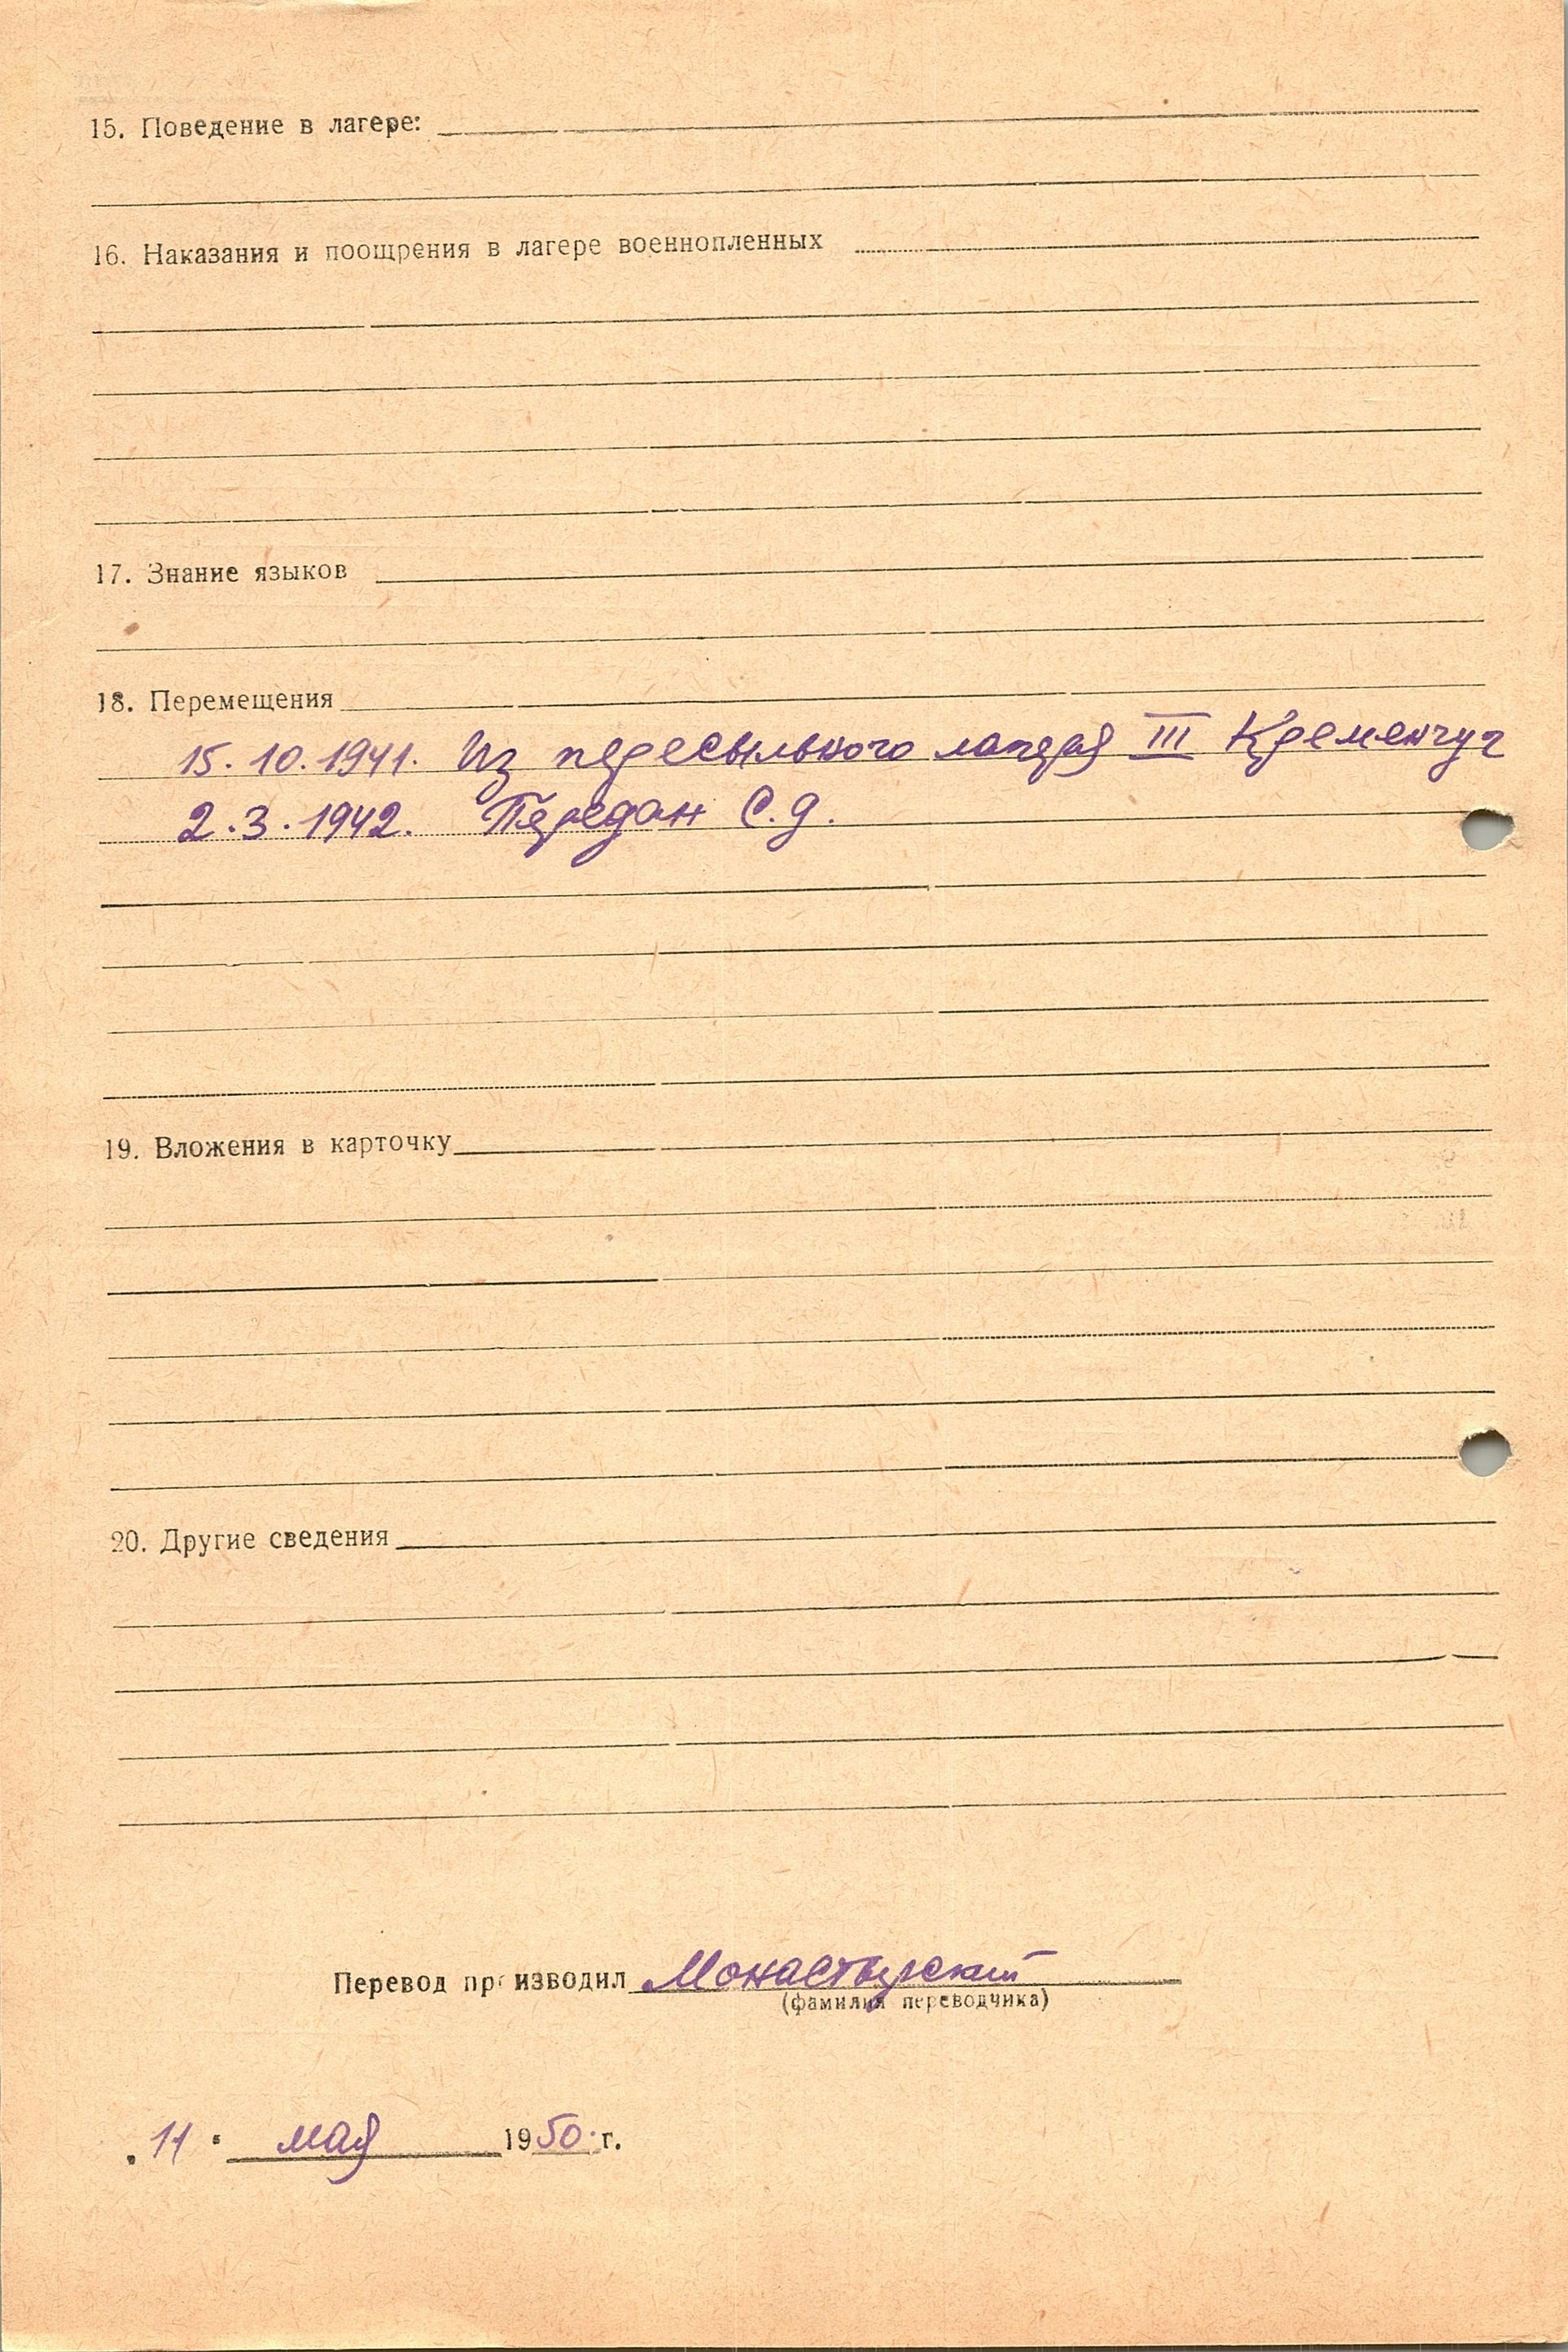 15. Поведение в лагере:
16. Наказания и поощрения в лагере военнопленных
17. Знание языков
18. Перемещения
15.10.1941. Из пересыльного лагеря III Кременчуг
2.3.1942. Передан С.Д.
19. Вложения в карточку
20. Другие сведения
Перевод производил Монастырский
(фамилия переводчика)
"11" мая 1950 г.